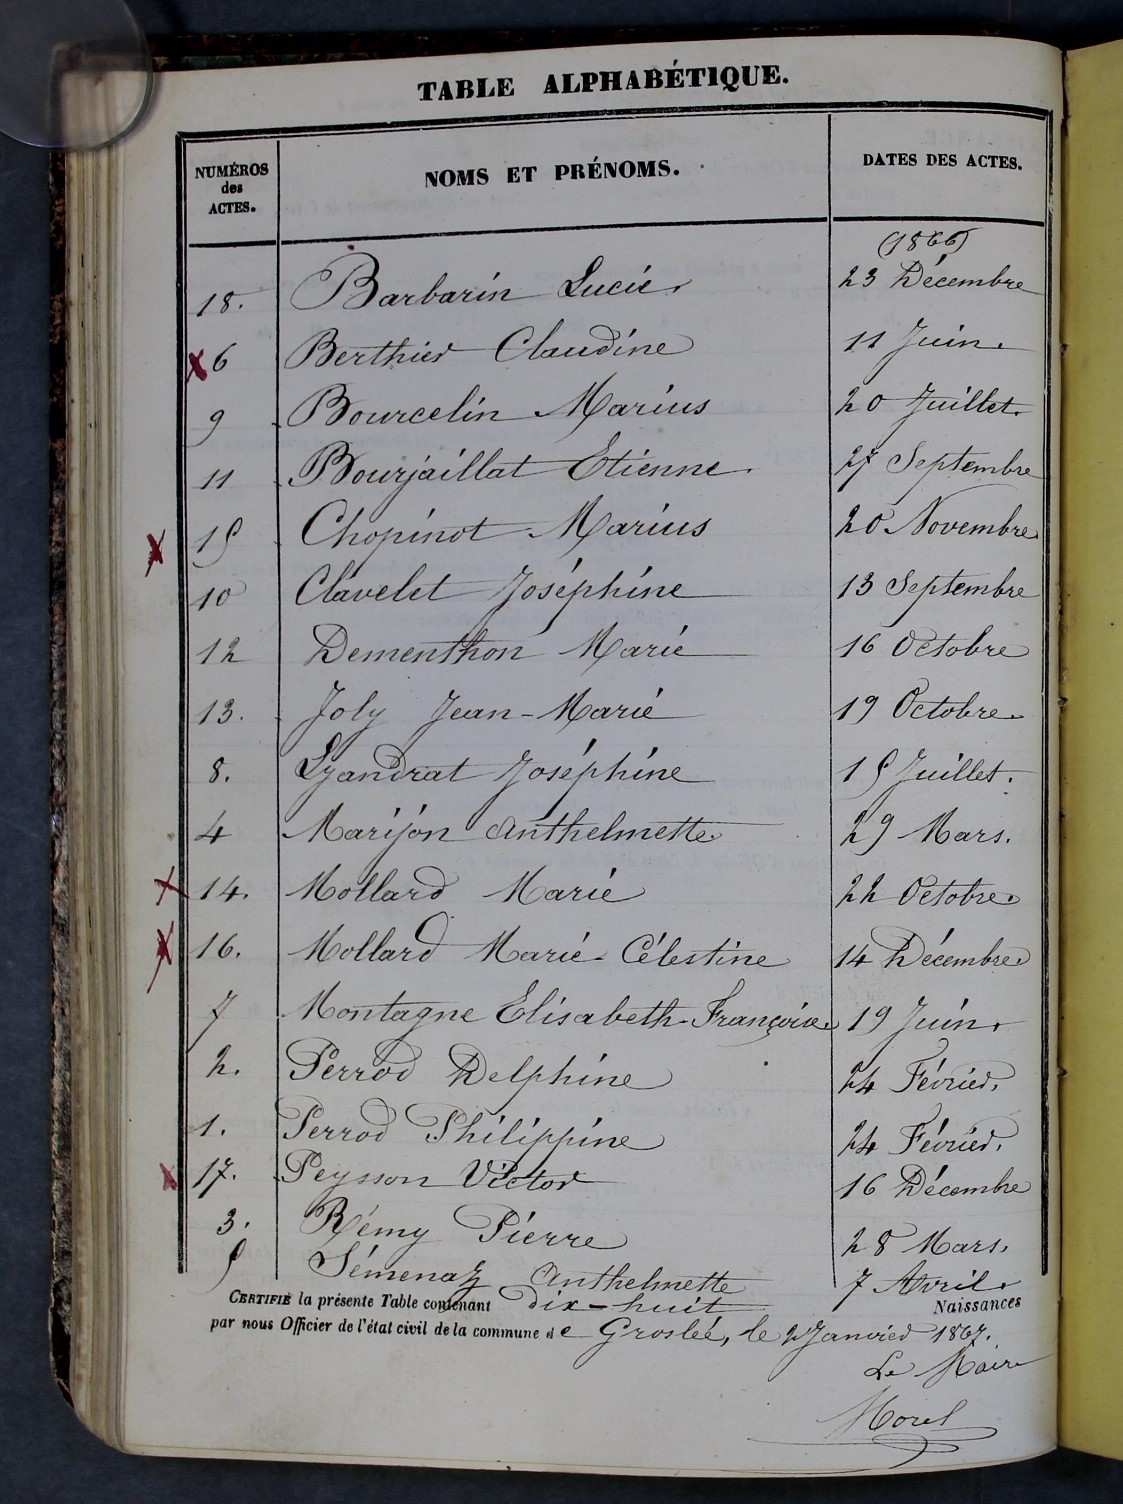 TABLE ALPHABÉTIQUE.
NUMÉROS des ACTES. NOMS ET PRÉNOMS. DATES DES ACTES.
(1866)
18. Barbarin Lucie 23 Décembre
6 Berthier Claudine 11 Juin.
9 Bourcelin Marius 20 Juillet.
11 Bourjaillat Etienne 27 Septembre
15 Chopinot Marius 20 Novembre
10 Clavelet Joséphine 13 Septembre
12 Dementhon Marie 16 Octobre
13. Joly Jean-Marie 19 Octobre
8. Lyandrat Joséphine 15 Juillet.
4 Marijon Anthelmette 29 Mars.
14. Mollard Marie 22 Octobre
16. Mollard Marie-Célestine 14 Décembre
7 Montagne Elisabeth-Françoise 19 Juin.
2. Perrod Delphine 24 Février.
1. Perrod Philippine 24 Février.
17. Peysson Victor 16 Décembre
3. Rémy Pierre 28 Mars.
5 Sémenaz Anthelmette 7 Avril.
CERTIFIÉ la présente Table contenant dix-huit Naissances
par nous Officier de l'état civil de la commune de Groslée, le 2 Janvier 1867.
Le Maire
Morel